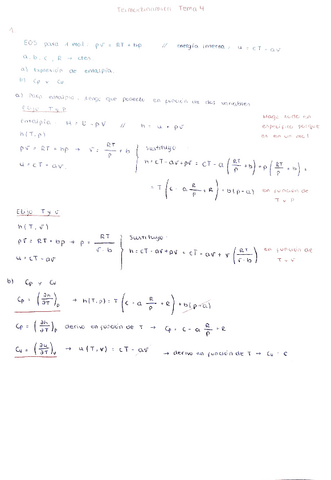 Termodinámica Tema 4
1.
EOS para 1 mol: pv = RT + bp // energía interna: u = cT - av
a, b, c, R → ctes
a) Expresión de entalpía.
b) Cp y Cv
a) Pide entalpía. Tengo que ponerlo en función de dos variables.
Elijo T y P
Entalpía // H = U + pV // h = u + pv
h(T,p)
pv = RT + bp → v = RT/p + b } Sustituyo
u = cT - av } h = cT - av + pv = cT - a(RT/p + b) + p(RT/p + b) =
= T(c - a R/p + R) + b(p-a) en función de T y P
Elijo T y v
h(T,v)
pv = RT + bp → p = RT/(v-b) } Sustituyo
u = cT - av } h = cT - av + pv = cT - av + v(RT/(v-b)) en función de T y v
b) Cp y Cv
Cp = (∂h/∂T)p → h(T,p) = T(c - a R/p + R) + b(p-a)
Cp = (∂h/∂T)p derivo en función de T → Cp = c - a R/p + R
Cv = (∂u/∂T)v → u(T,v) = cT - av → derivo en función de T → Cv = c